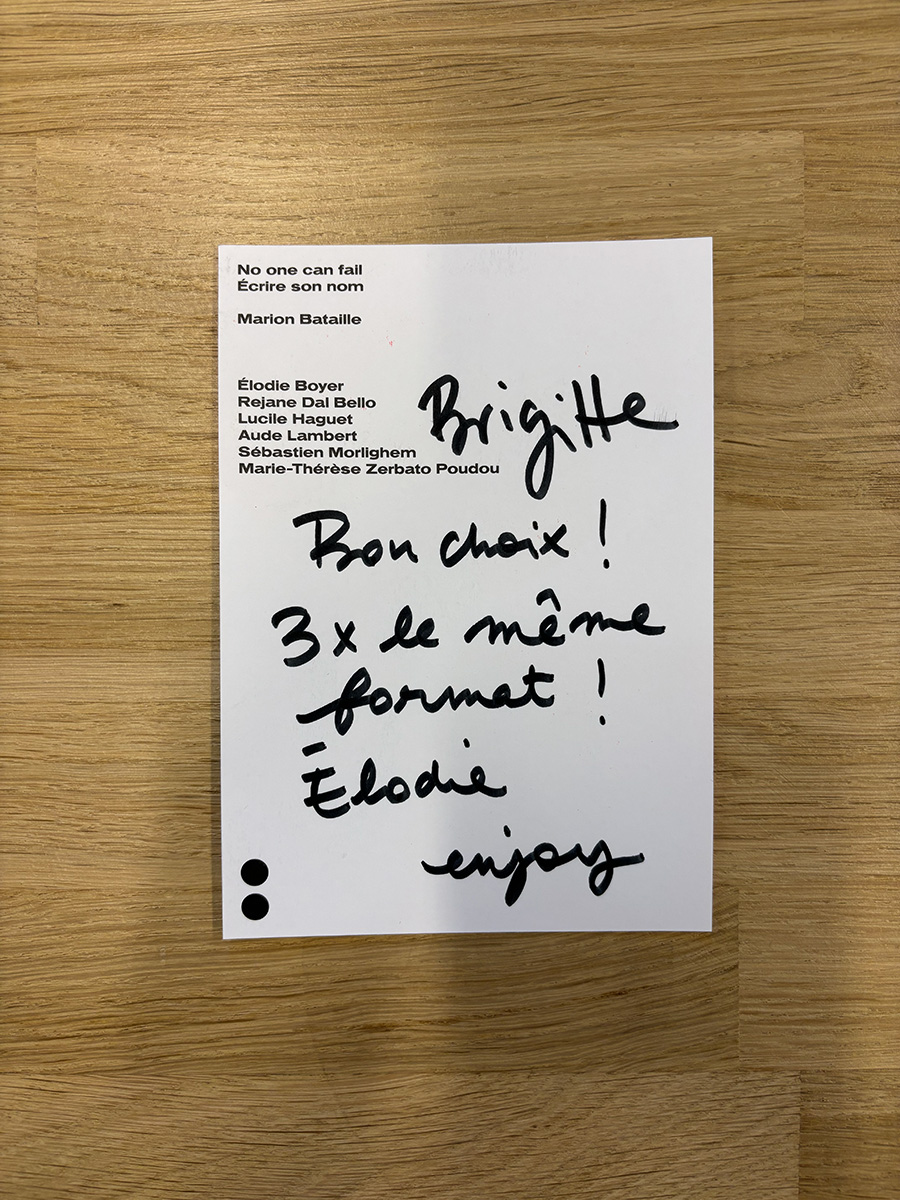 No one can fail
Écrire son nom
Marion Bataille
Élodie Boyer
Rejane Dal Bello
Lucile Haguet
Aude Lambert
Sébastien Morlighem
Marie-Thérèse Zerbato Poudou
Brigitte
Bon choix !
3x le même
format !
Élodie
enjoy